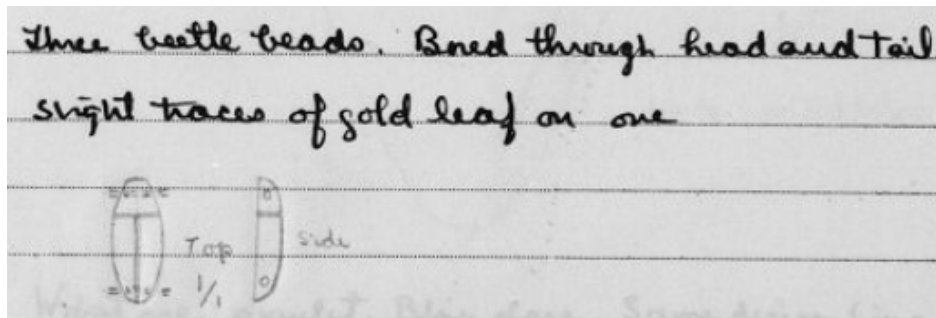 Three beetle beads. Bored through head and tail
slight traces of gold leaf on one
Top
side
1/1